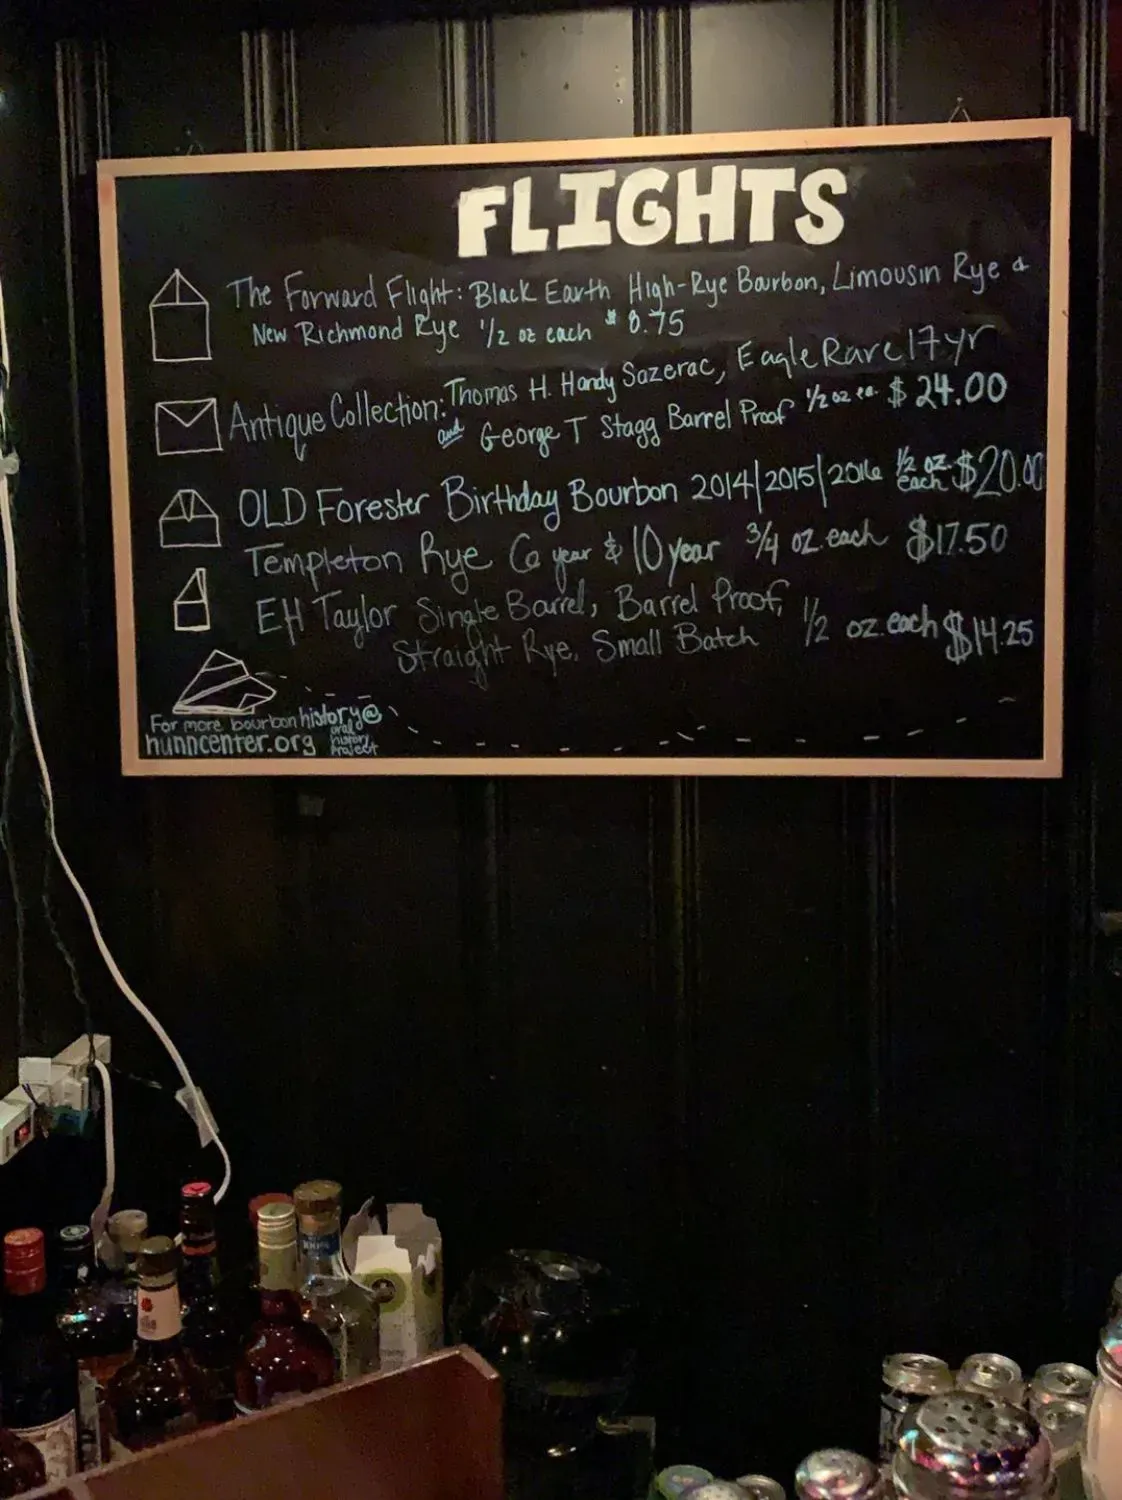 FLIGHTS
The Forward Flight: Black Earth High-Rye Bourbon, Limousin Rye &
New Richmond Rye 1/2 oz each $8.75
Antique Collection: Thomas H. Handy Sazerac, Eagle Rare 17 yr
and George T Stagg Barrel Proof 1/2 oz ea. $24.00
OLD Forester Birthday Bourbon 2014|2015|2016 1/2 oz. each $20.00
Templeton Rye 6 year & 10 year 3/4 oz. each $17.50
EH Taylor Single Barrel, Barrel Proof,
Straight Rye, Small Batch 1/2 oz. each $14.25
For more bourbon history @
nunncenter.org oral history Project